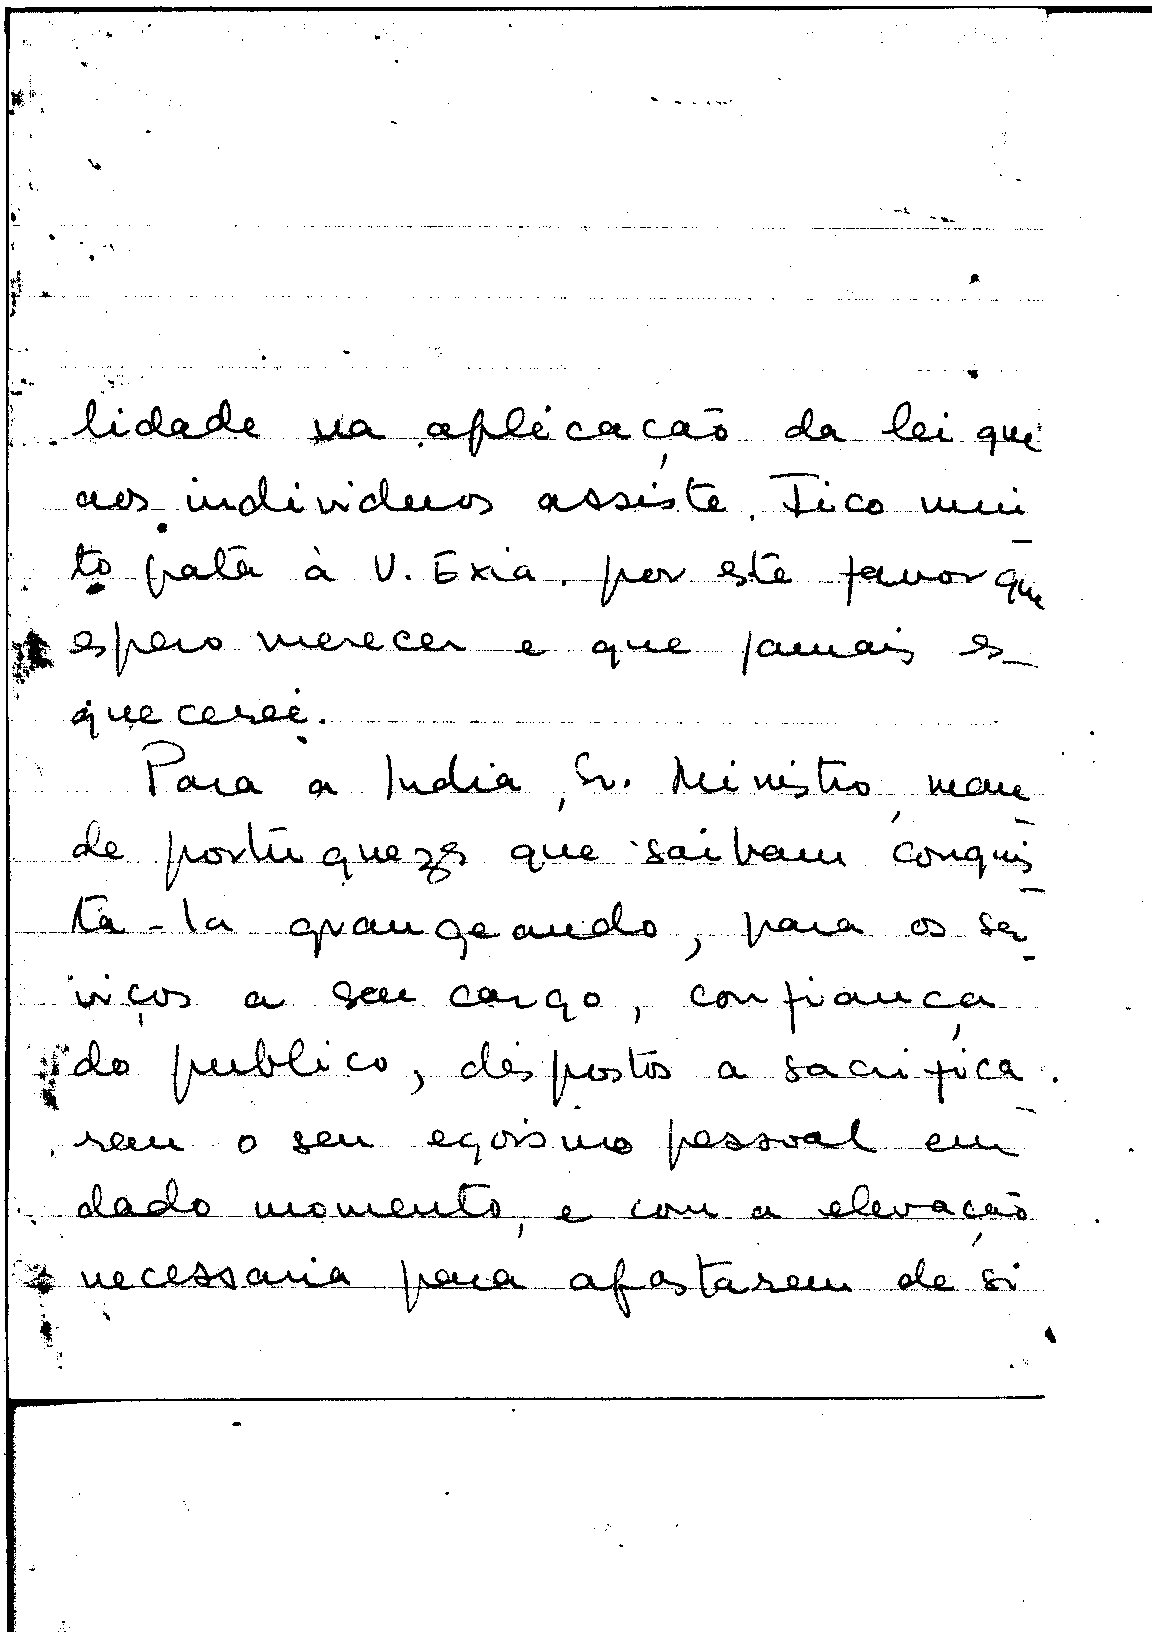 lidade na aplicação da lei que
aos individuos assiste. Fico mui
to grata à V. Exia. por este favor que
espero merecer e que jamais es_
quecerei.
Para a India, Sr. Ministro, man_
de portuguezes que saibam conquis_
ta-la grangeando, para os ser_
viços a seu cargo, confiança
do publico, dispostos a sacrifica_
rem o seu egoismo pessoal em
dado momento, e com a elevação
necessaria para afastarem de si